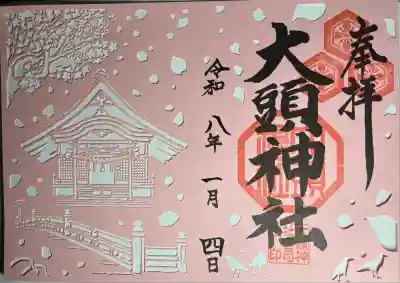 奉拝
大頭神社
令和八年一月四日